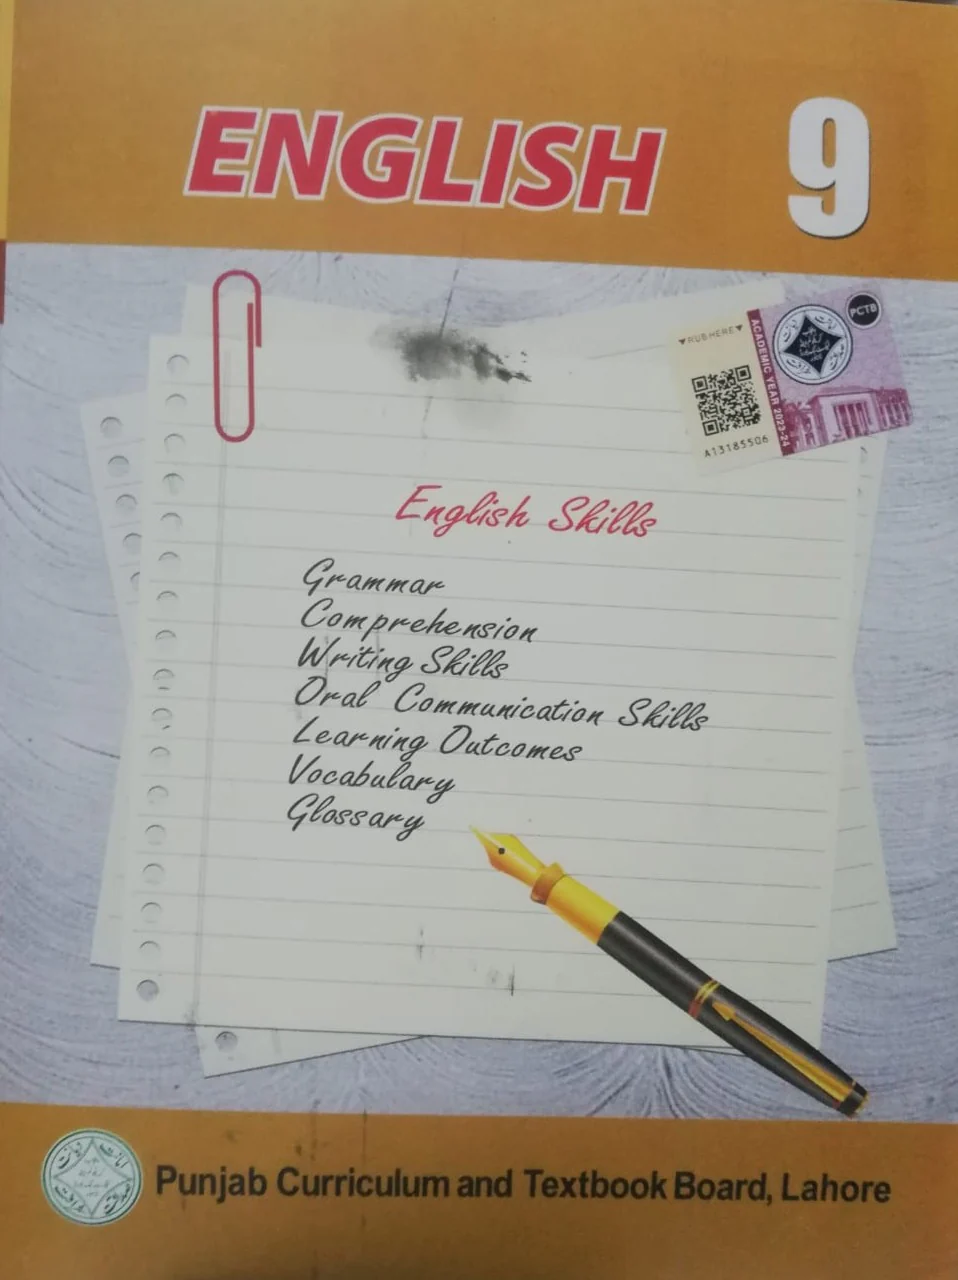 ENGLISH 9
PCTB
▼RUB HERE▼
ACADEMIC YEAR 2023-24
A13185506
English Skills
Grammar
Comprehension
Writing Skills
Oral Communication Skills
Learning Outcomes
Vocabulary
Glossary
Punjab Curriculum and Textbook Board, Lahore